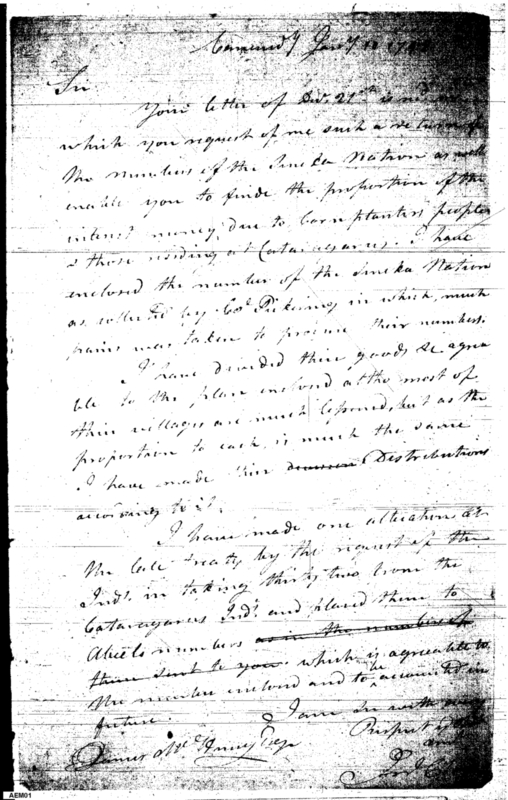 Sir
Your letter of Decr. 21st is recd.
which you request of me such a return of
the numbers of the Seneka Nation as will
enable you to finde the proportion of the
interest money, due to Cornplanters people
& those residing at Cataragarus. I have
enclosed the number of the Seneka Nation
as collected by Col. Pickering in which, much
pains was taken to procure their numbers.
I have devided their goods &c agrea
ble to the plan enclosed altho most of
their villages are much lessoned, but as the
proportion to each, is much the same
I have made their Distributions
according to it.
I have made one alteration at
the late treaty by the request of the
Inds. in taking thirty two from the
Cataragarus Inds. and placed them to
Abeels numbers as in the number of
them sent to you which is agreeable to
the number enclosed and to be accounted in
future.
I am Sir with
Respect
James McHenry Esqr
AEM01